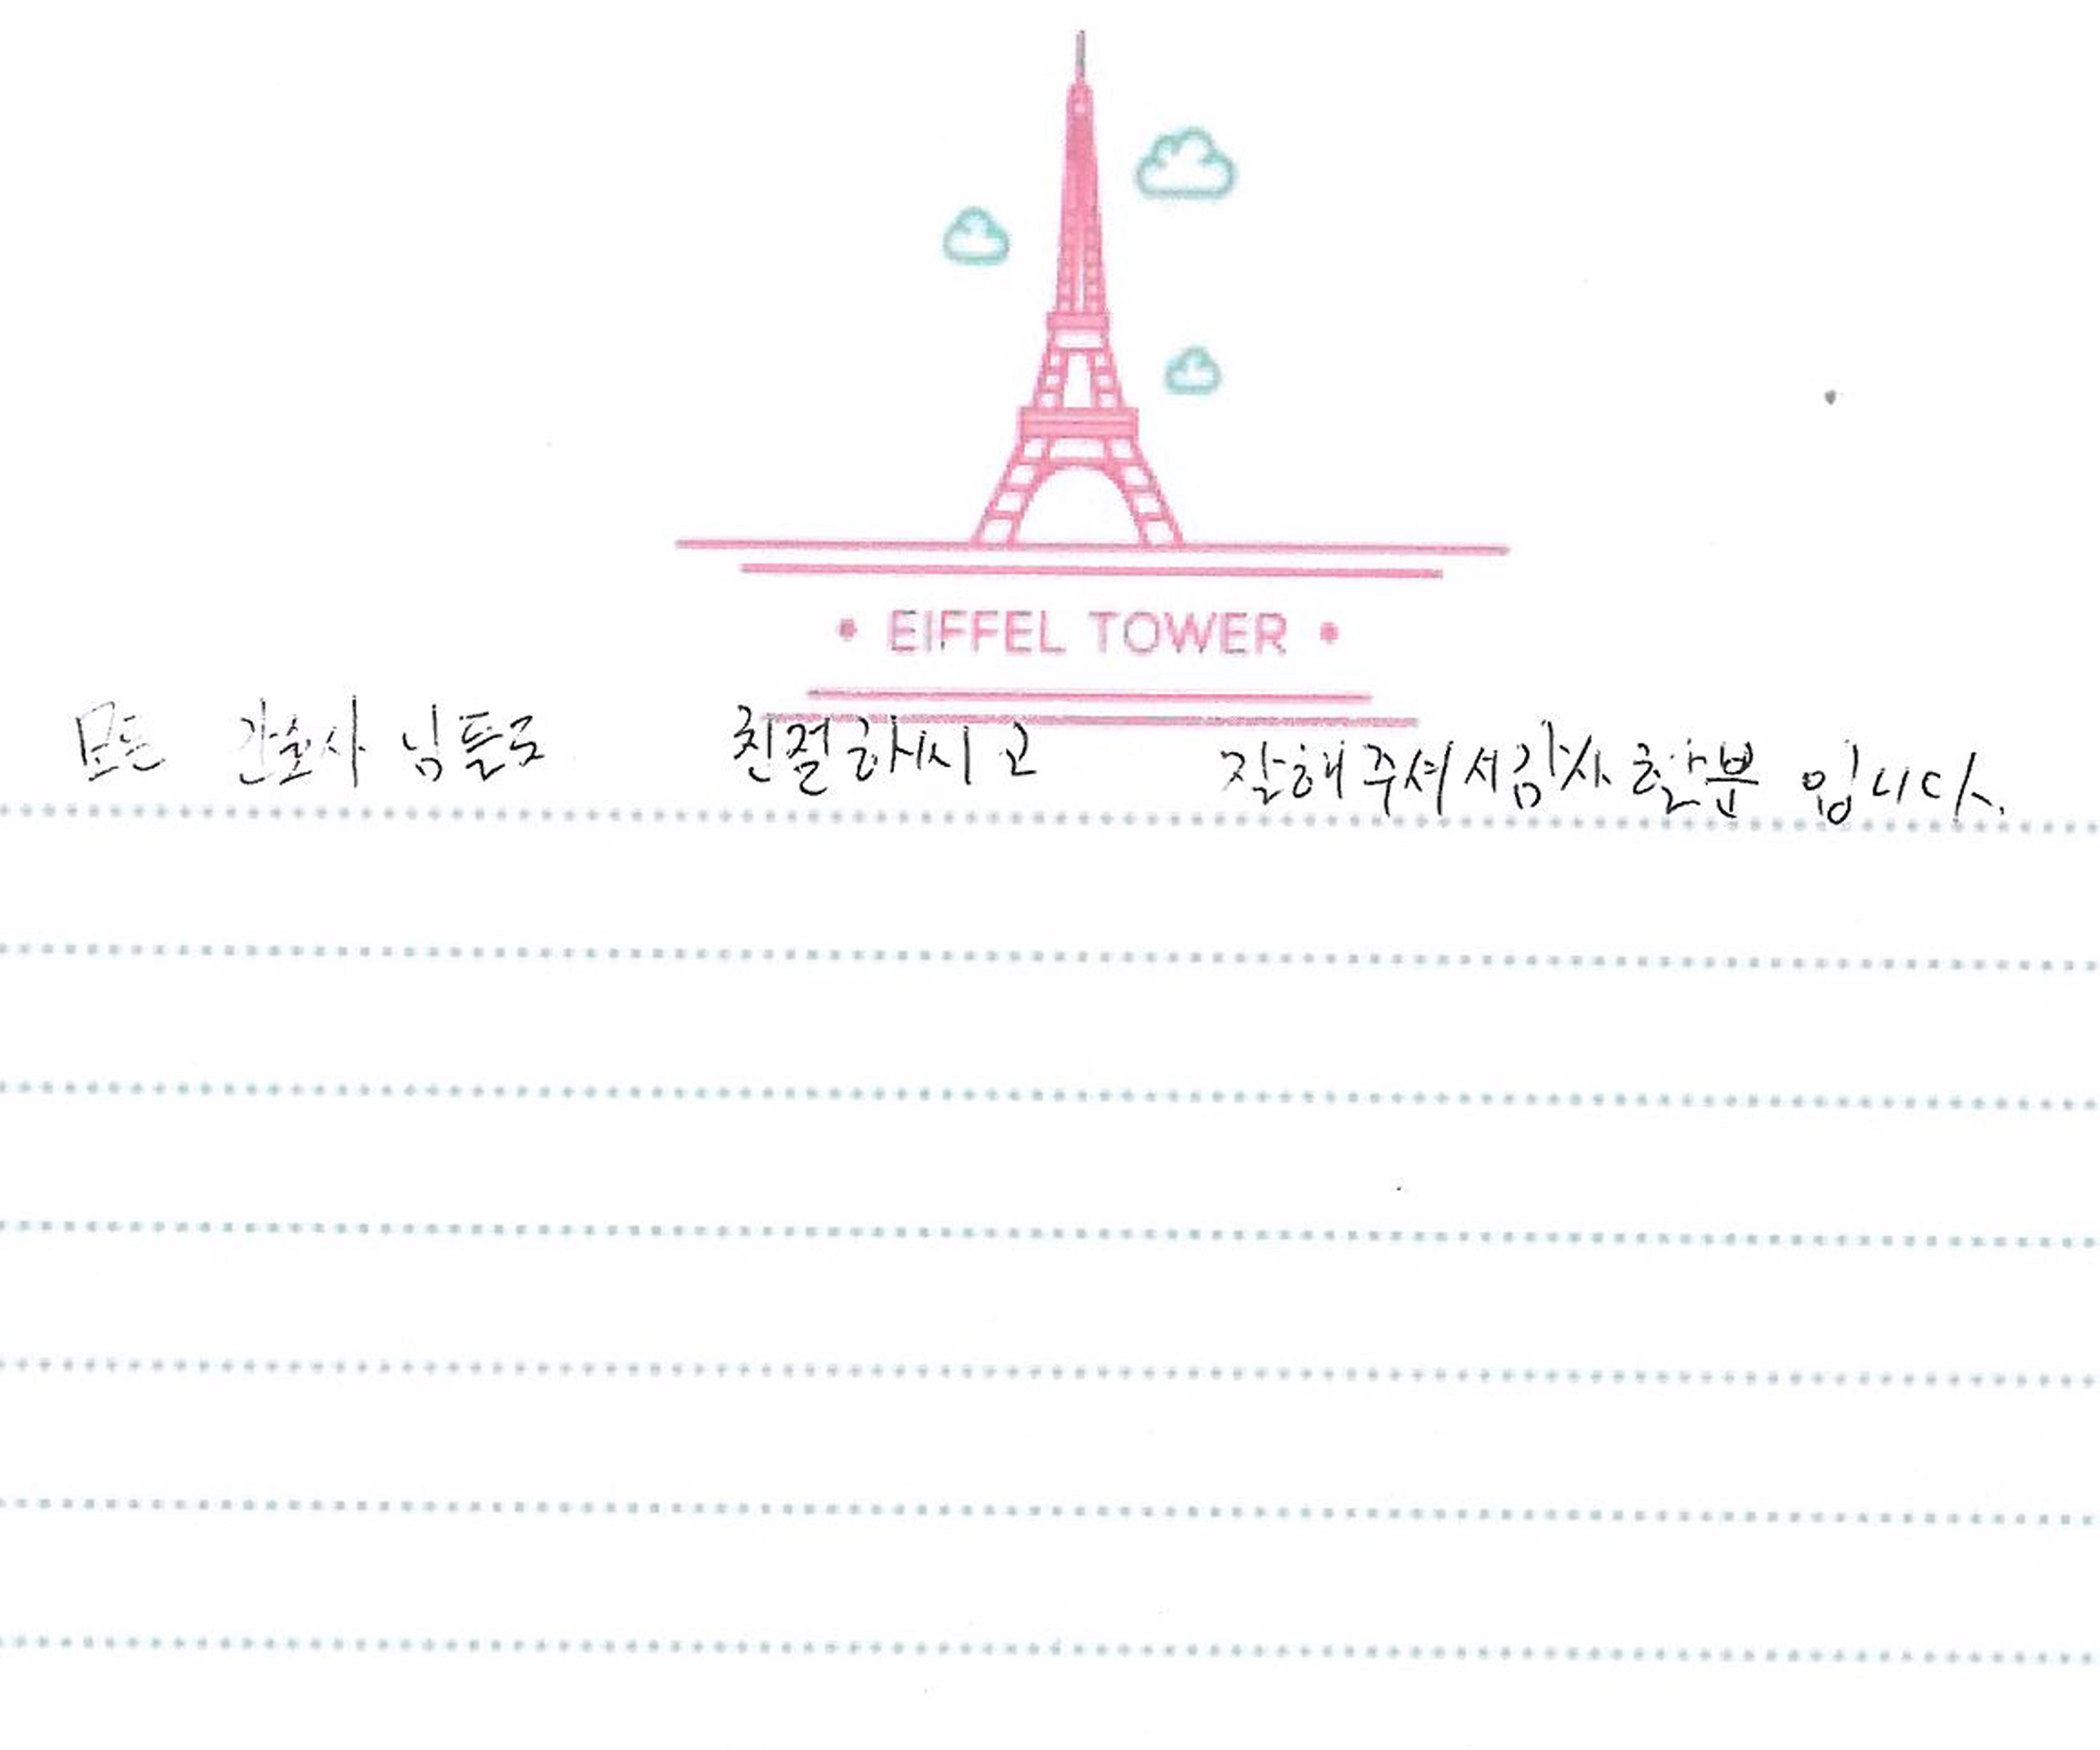 • EIFFEL TOWER •
모든 간호사 님들도 친절하시고 잘해주셔서감사할분 입니다.